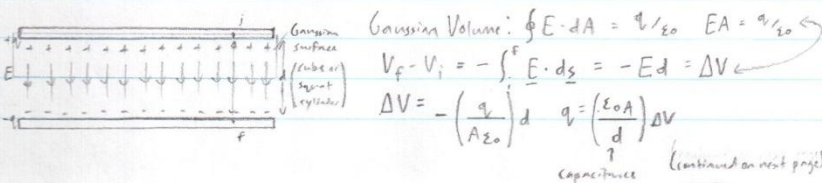 i
Gaussian surface (cube or squat cylinder)
+q + + + + + + + + + + + +
E d
-q
f
Gaussian Volume: ∮ E · dA = q/ε₀ EA = q/ε₀
V_f - V_i = - ∫_i^f E · ds = -Ed = ΔV
ΔV = -(q/Aε₀)d q = (ε₀A/d) ΔV
↑
capacitance (continued on next page)